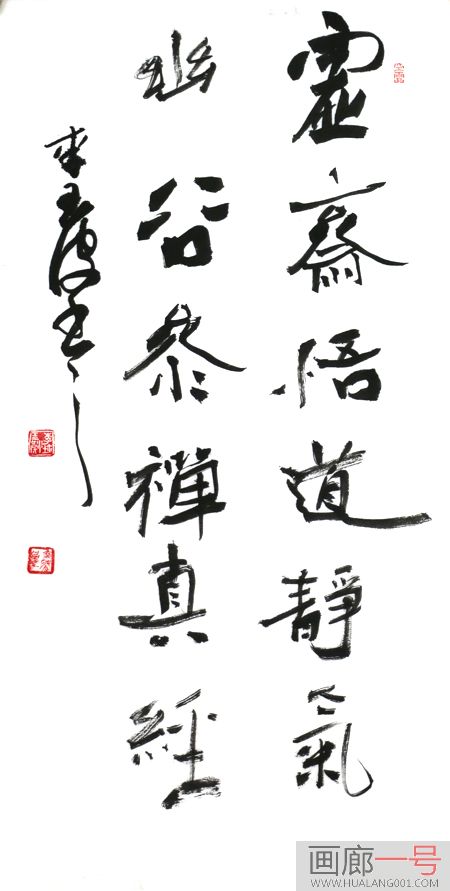 虛齋悟道靜氣
幽谷參禪真經
玉波书
画廊一号
WWW.HUALANG001.COM